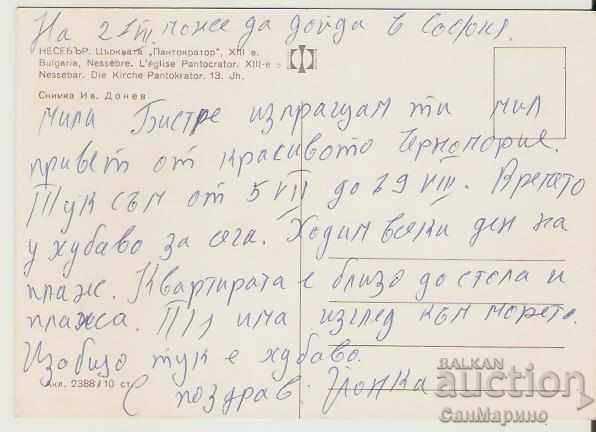 На 21 VIII може да дойда в София.
НЕСЕБЪР. Църквата „Пантократор", XIII в.
Bulgaria, Nessèbre. L'église Pantocrator. XIII-e s
Nessebar. Die Kirche Pantokrator. 13. Jh.
Снимка Ив. Донев
мили Бистре изпращам ти мил
привет от красивото Черноморие.
Тук съм от 5 VIII до 29 VIII. Времето
у хубаво за сега. Ходим всеки ден на
плаж. Квартирата е близо до стола и
плажа. има изглед към морето.
Изобщо тук е хубаво.
С поздрав:
Акл. 2388/10 ст.
BALKAN
auction
СанМарино